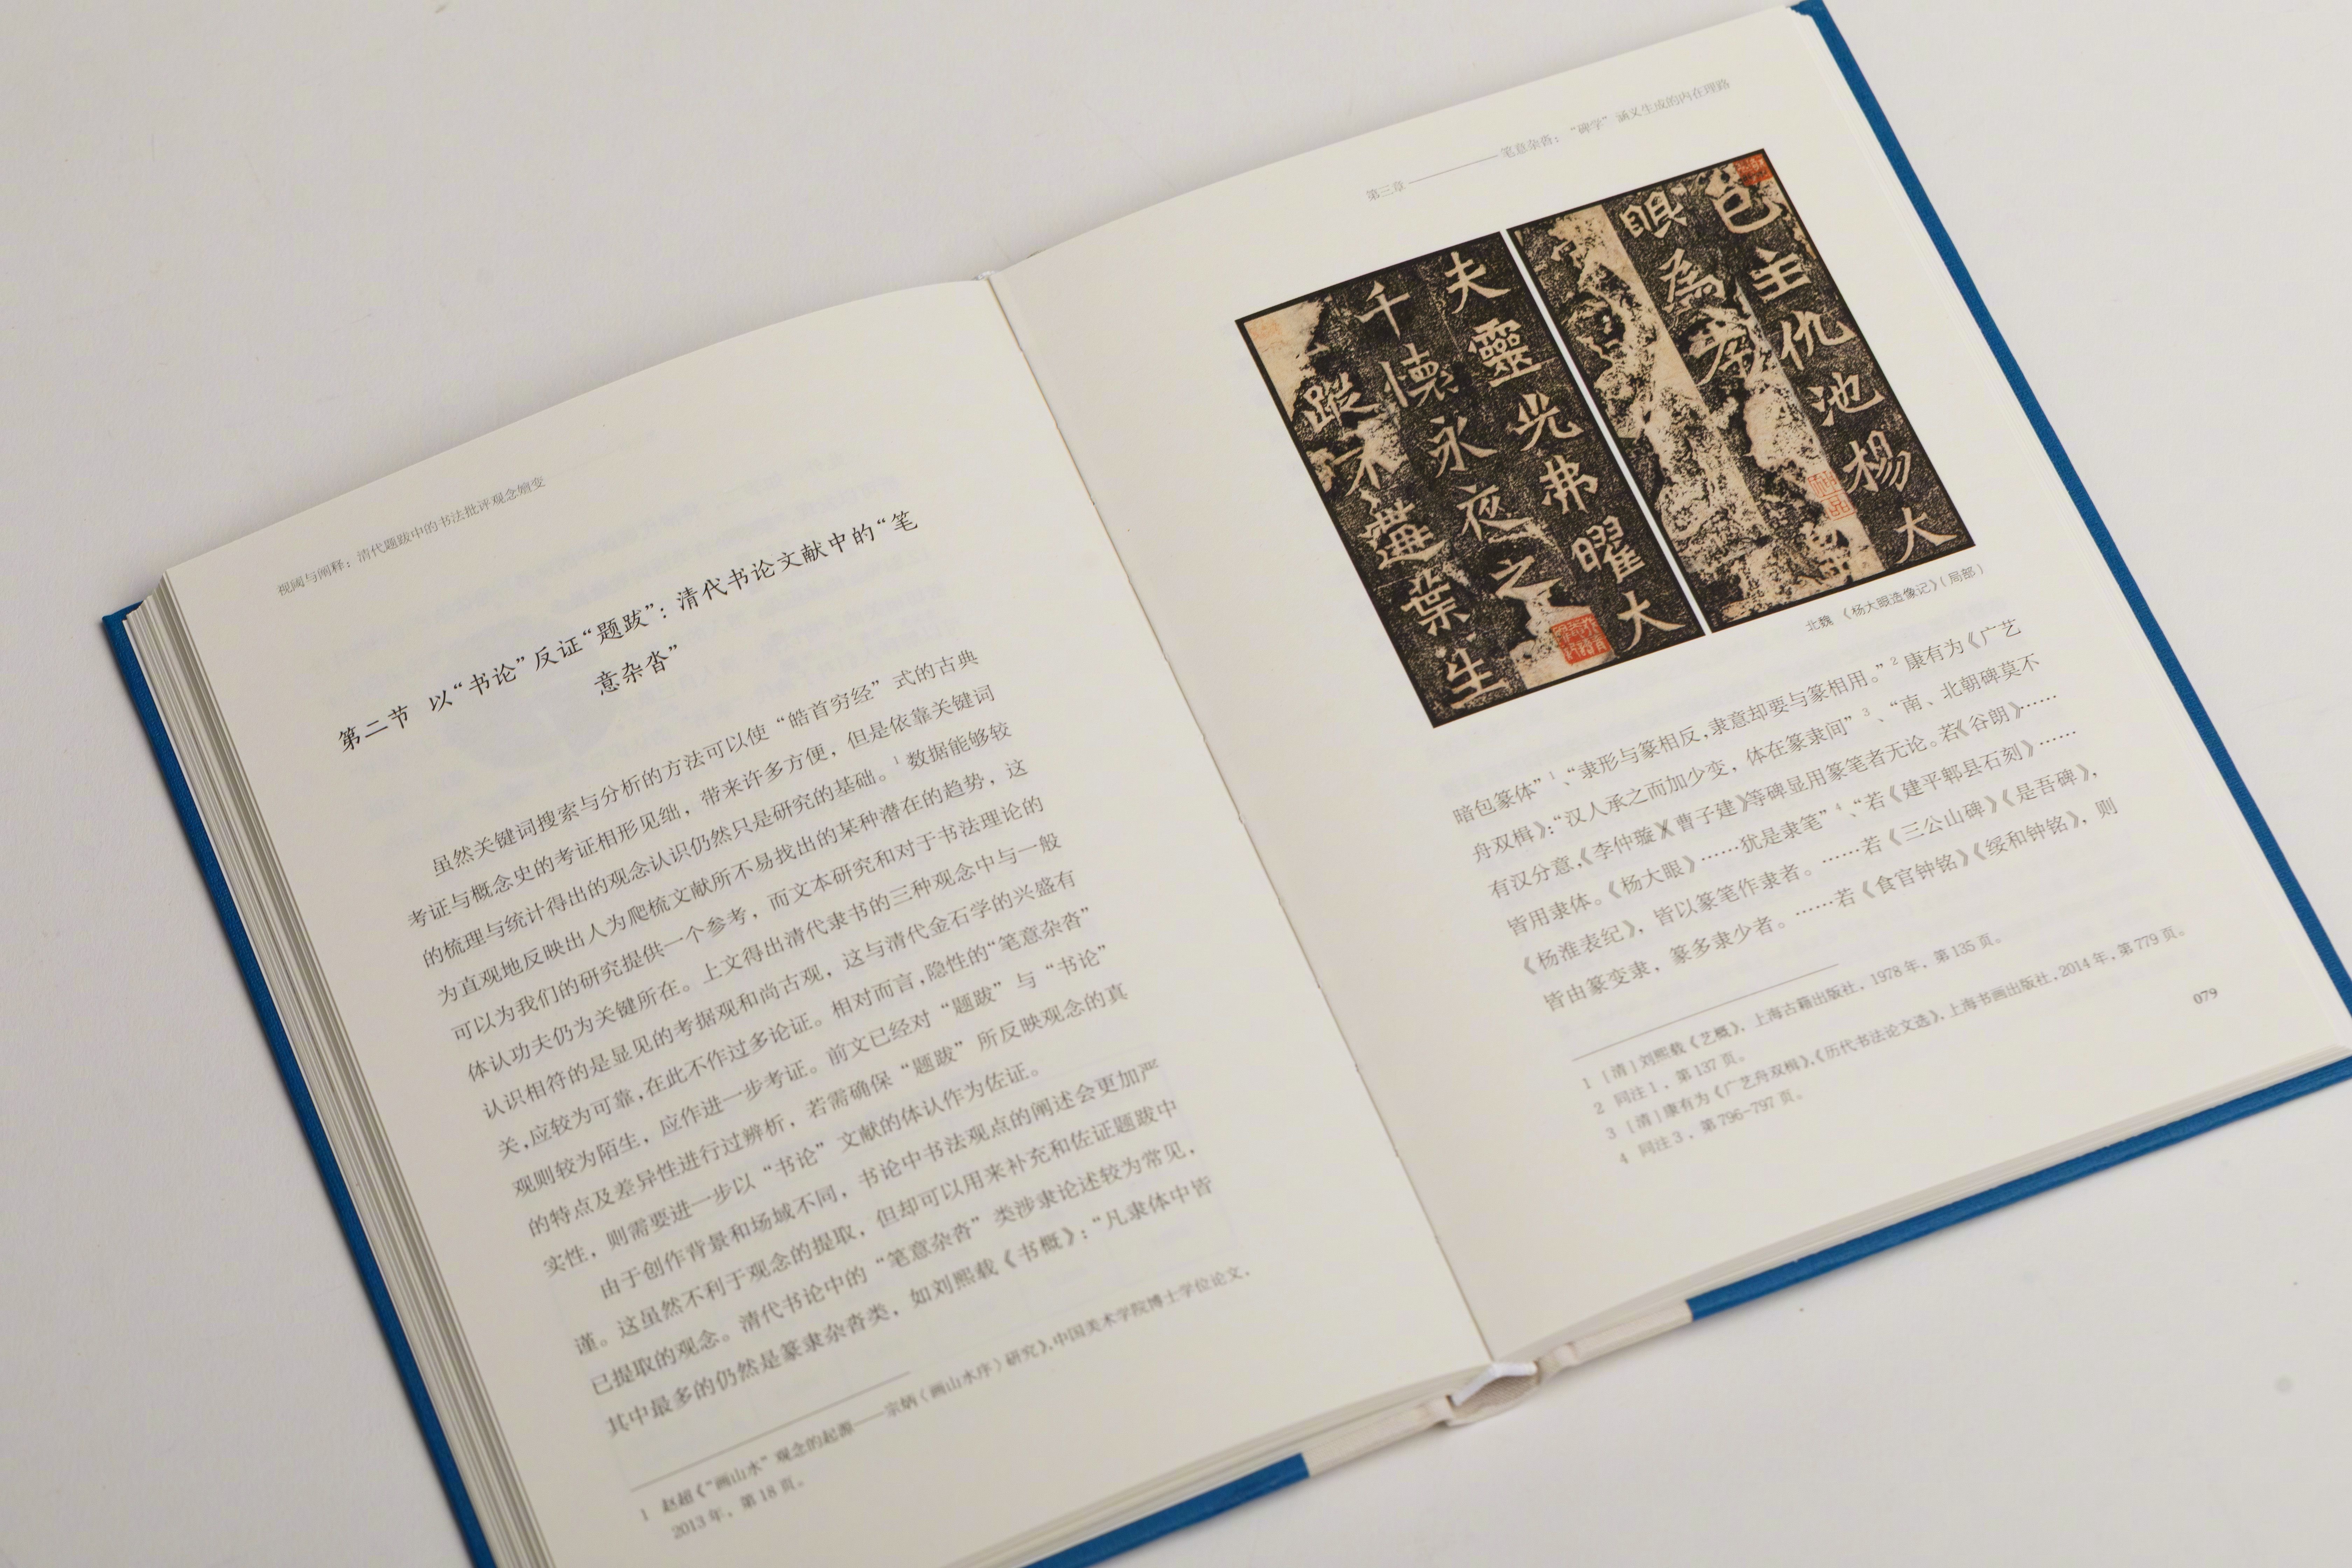 视阈与阐释：清代题跋中的书法批评观念嬗变
第二节 以“书论”反证“题跋”：清代书论文献中的“笔
意杂沓”
虽然关键词搜索与分析的方法可以使“皓首穷经”式的古典
考证与概念史的考证相形见绌，带来许多方便，但是依靠关键词
的梳理与统计得出的观念认识仍然只是研究的基础。1 数据能够较
为直观地反映出人为爬梳文献所不易找出的某种潜在的趋势，这
可以为我们的研究提供一个参考，而文本研究和对于书法理论的
体认功夫仍为关键所在。上文得出清代隶书的三种观念中与一般
认识相符的是显见的考据观和尚古观，这与清代金石学的兴盛有
关，应较为可靠，在此不作过多论证。相对而言，隐性的“笔意杂沓”
观则较为陌生，应作进一步考证。前文已经对“题跋”与“书论”
的特点及差异性进行过辨析，若需确保“题跋”所反映观念的真
实性，则需要进一步以“书论”文献的体认作为佐证。
由于创作背景和场域不同，书论中书法观点的阐述会更加严
谨。这虽然不利于观念的提取，但却可以用来补充和佐证题跋中
已提取的观念。清代书论中的“笔意杂沓”类涉隶论述较为常见，
其中最多的仍然是篆隶杂沓类，如刘熙载《书概》：“凡隶体中皆
1 赵超《“画山水”观念的起源——宗炳〈画山水序〉研究》，中国美术学院博士学位论文，
2013 年，第 18 页。
第三章 笔意杂沓：“碑学”涵义生成的内在理路
邑主仇池楊大
眼為孝
夫靈光弗曜大
千懷永夜之
蹤不遘葉生
北魏 《杨大眼造像记》（局部）
暗包篆体”1、“隶形与篆相反，隶意却要与篆相用。”2 康有为《广艺
舟双楫》：“汉人承之而加少变，体在篆隶间”3、“南、北朝碑莫不
有汉分意，《李仲璇》《曹子建》等碑显用篆笔者无论。若《谷朗》……
皆用隶体。《杨大眼》……犹是隶笔”4、“若《建平郫县石刻》……
《杨淮表纪》，皆以篆笔作隶者。……若《三公山碑》《是吾碑》，
皆由篆变隶，篆多隶少者。……若《食官钟铭》《绥和钟铭》，则
1 ［清］刘熙载《艺概》，上海古籍出版社，1978 年，第 135 页。
2 同注 1，第 137 页。
3 ［清］康有为《广艺舟双楫》，《历代书法论文选》，上海书画出版社，2014 年，第 779 页。
4 同注 3，第 796-797 页。
079